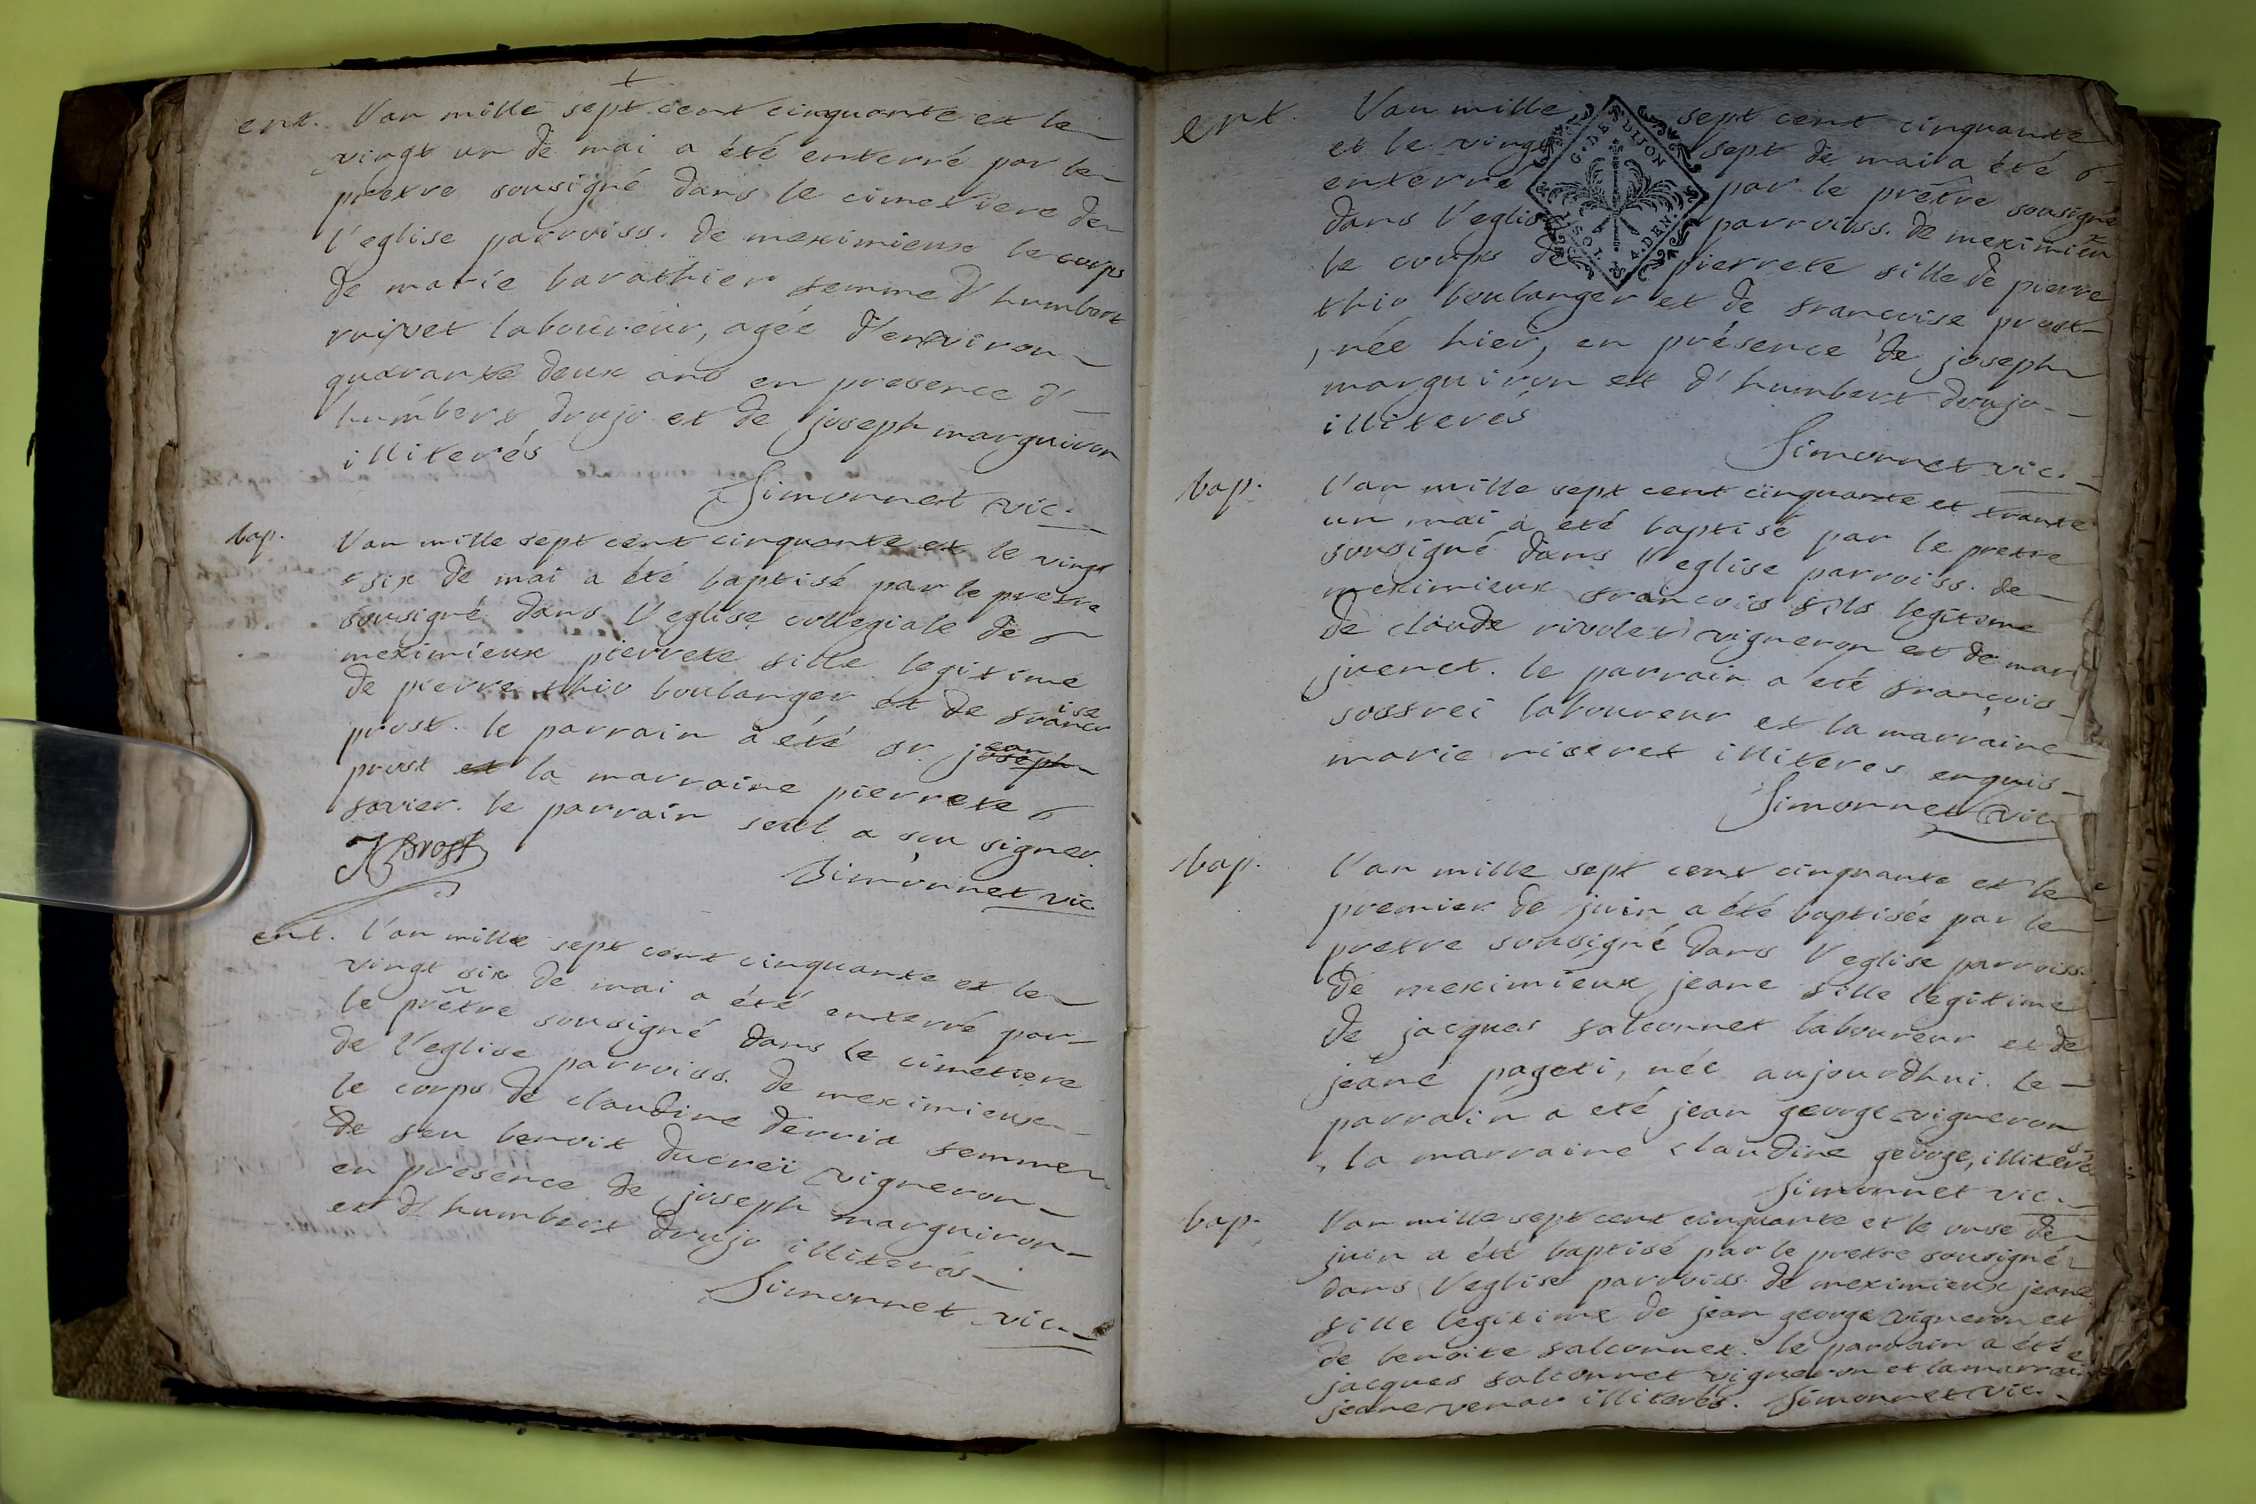 ent. l'an mille sept cent cinquante et le
vingt un de mai a été enterré par le
pretre sousigné dans le cimetiere de
l'eglise parroiss. de meximieux le corps
de marie barathier femme d'humbert
roivet laboureur, agée d'environ
quarante deux ans en presence d'
humbert drujo et de joseph marguiron
illiterés
Simonnet vic.
bap. l'an mille sept cent cinquante et le vingt
six de mai a été baptisé par le pretre
sousigné dans l'eglise collegiale de
meximieux pierrete fille legitime
de pierre thio boulanger et de francoise
prost. le parrain a été sr. jean
prost la marraine pierrete
favier. le parrain seul a sçu signer.
JProst
Simonnet vic.
ent. l'an mille sept cent cinquante et le
vingt six de mai a été enterré par
le prêtre sousigné dans le cimetiere
de l'eglise parroiss. de meximieux
le corps de claudine dervia femme
de feu benoit ducreï vigneron
en presence de joseph marguiron
et d'humbert drujo illiterés
Simonnet vic.
ent. l'an mille sept cent cinquante
et le vingt sept de mai a été
enterré par le prêtre sousigné
dans l'eglise parroiss. de meximieu
le corps de pierrete fille de pierre
thio boulanger et de francoise prost
née hier, en présence de joseph
marguiron et d'humbert drujo
illiterés
Simonnet vic.
G. DE DIJON
SOL. 4. DEN.
bap. l'an mille sept cent cinquante et trante
un mai a été baptisé par le pretre
sousigné dans l'eglise parroiss. de
meximieux francois fils legitime
de claude rivolet vigneron et de mari
juenet. le parrain a été françois
joffrei laboureur et la marraine
marie niseret illiteres enquis
Simonnet vic
bap. l'an mille sept cent cinquante et le
premier de juin a été baptisée par le
pretre sousigné dans l'eglise parroiss.
de meximieux jeane fille legitime
de jacques falconnet laboureur et de
jeane pageti, née aujourdhui. le
parrain a eté jean george vigneron
la marraine claudine george, illiterés
Simonnet vic.
bap. l'an mille sept cent cinquante et le onse de
juin a été baptisé par le pretre sousigné
dans l'eglise parroiss. de meximieux jeane
fille legitime de jean george vigneron et
de benoite falconnet. le parrain a été
jacques falconnet vigneron et la marraine
jeane venar illiterés. Simonnet vic.